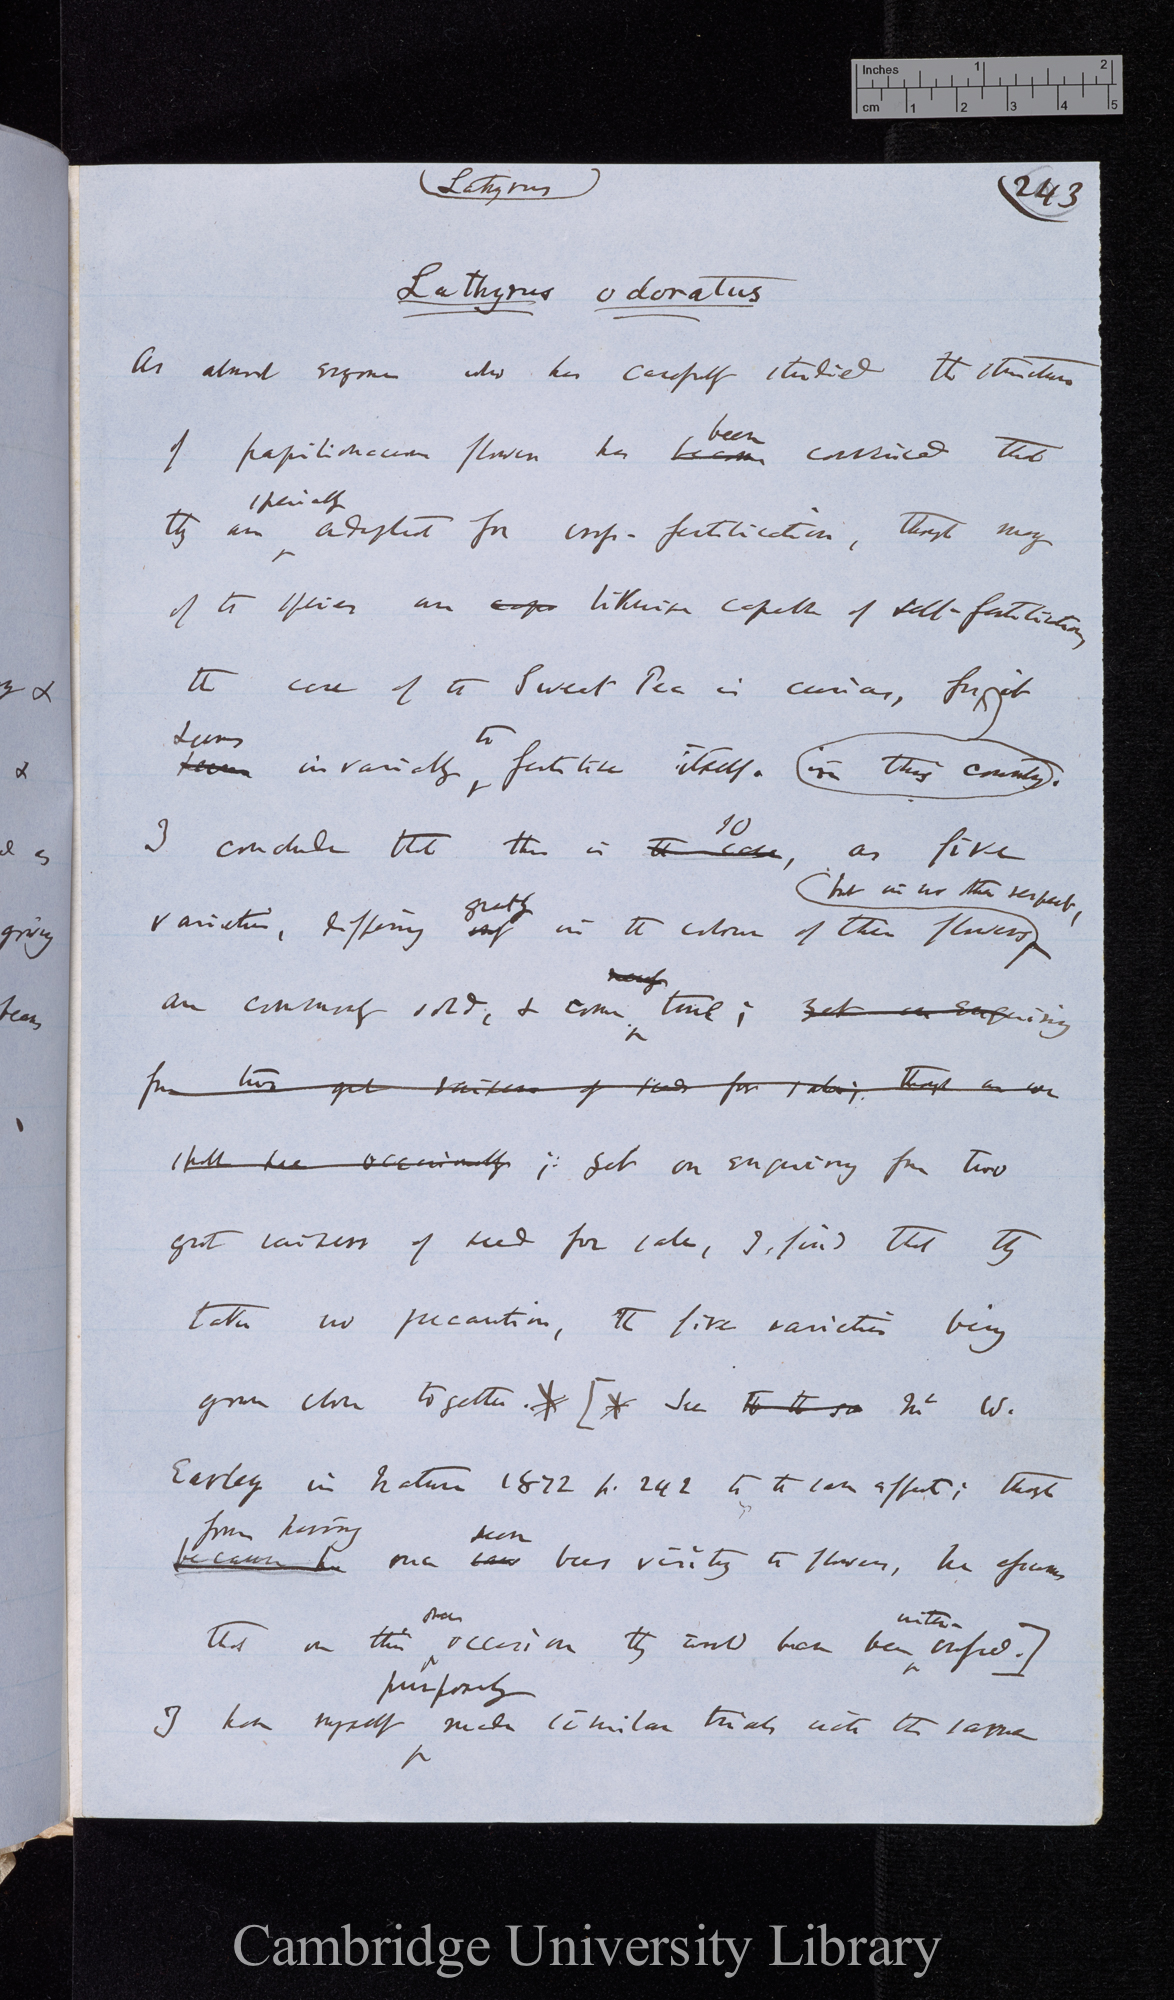 Inches 1 2
cm 1 2 3 4 5
(Lathyrus)
243
Lathyrus odoratus
As almost everyone who has carefully studied the structure
of papilionaceous flowers has become been convinced that
they are specially adapted for cross-fertilisation, though many
of the species are capa likewise capable of self-fertilisation,
the case of the Sweet Pea is curious, for it
seems seems invariably to fertilise itself. in this country.
I conclude that this is the case so, as five
varieties, differing greatly in the colour of their flowers but in no other respect,
are commonly sold, & come true; yet on enquiring
from two great raisers of seeds for sale; though as we
shall see occasionally ; yet on enquiry from two
great raisers of seed for sale, I find that they
take no precaution, the five varieties being
grown close together.* [* See to the sa Mr W.
Earley in Nature 1872 p. 242 to the same effect; though
because he from having once saw seen bees visiting the flowers, he assumes
that on this one occasion they would have been inter-crossed.]
I have myself purposely made similar trials with the same
y &
&
d as
giving
Cambridge University Library